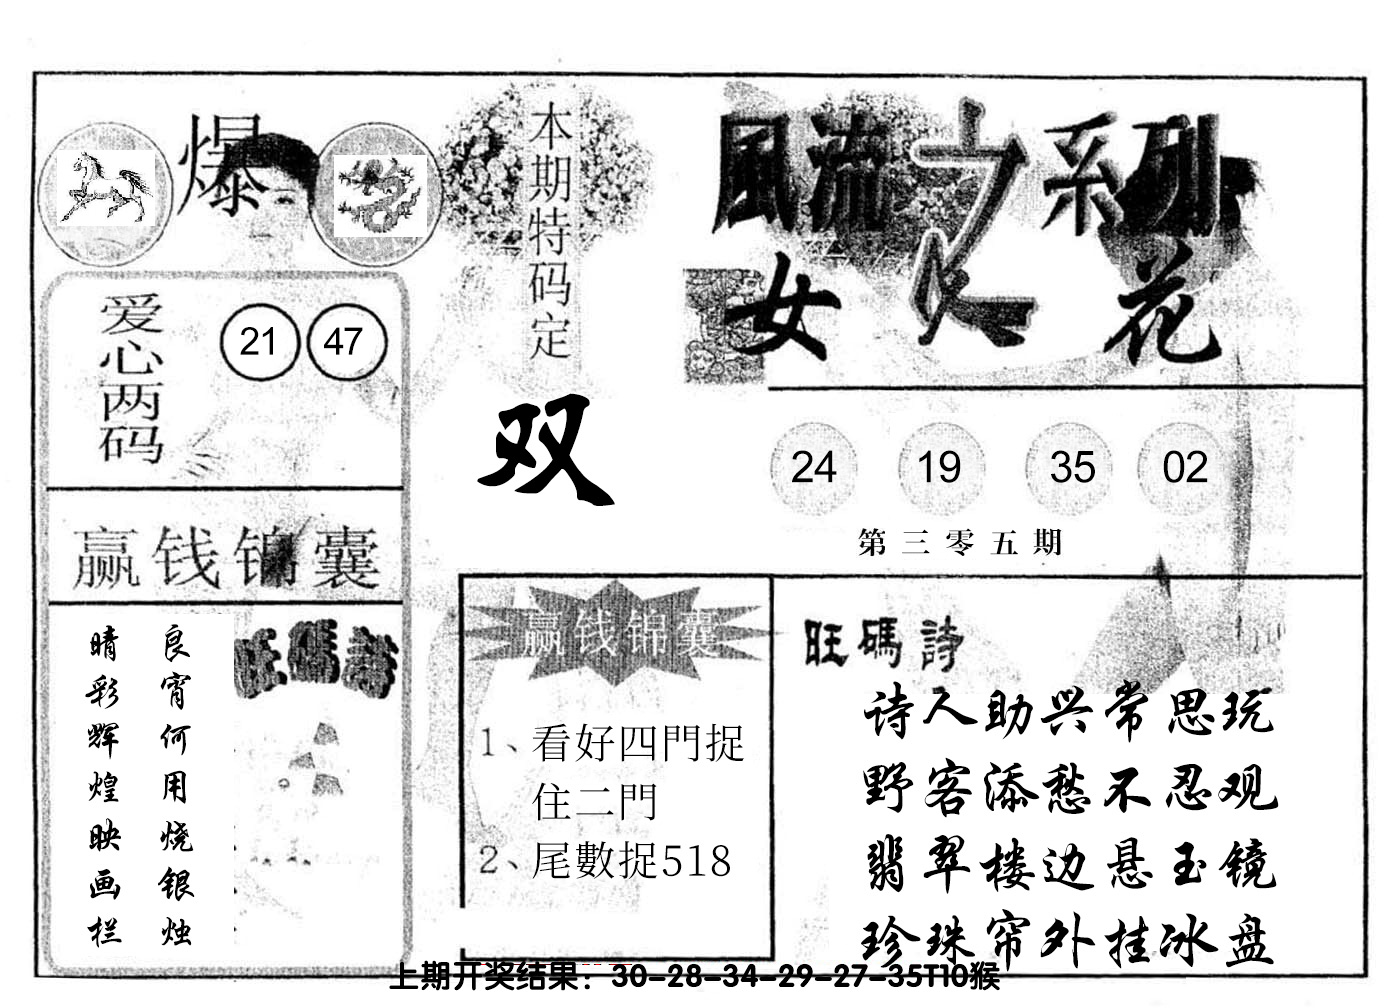 爆
本期特码定
双
風流之系列
女人花
爱心两码
21 47
24 19 35 02
第三零五期
赢钱锦囊
良宵何用烧银烛
晴彩辉煌映画栏
旺碼詩
赢钱锦囊
1、看好四門捉
住二門
2、尾數捉518
旺碼詩
诗人助兴常思玩
野客添愁不忍观
翡翠楼边悬玉镜
珍珠帘外挂冰盘
上期开奖结果：30-28-34-29-27-35T10猴